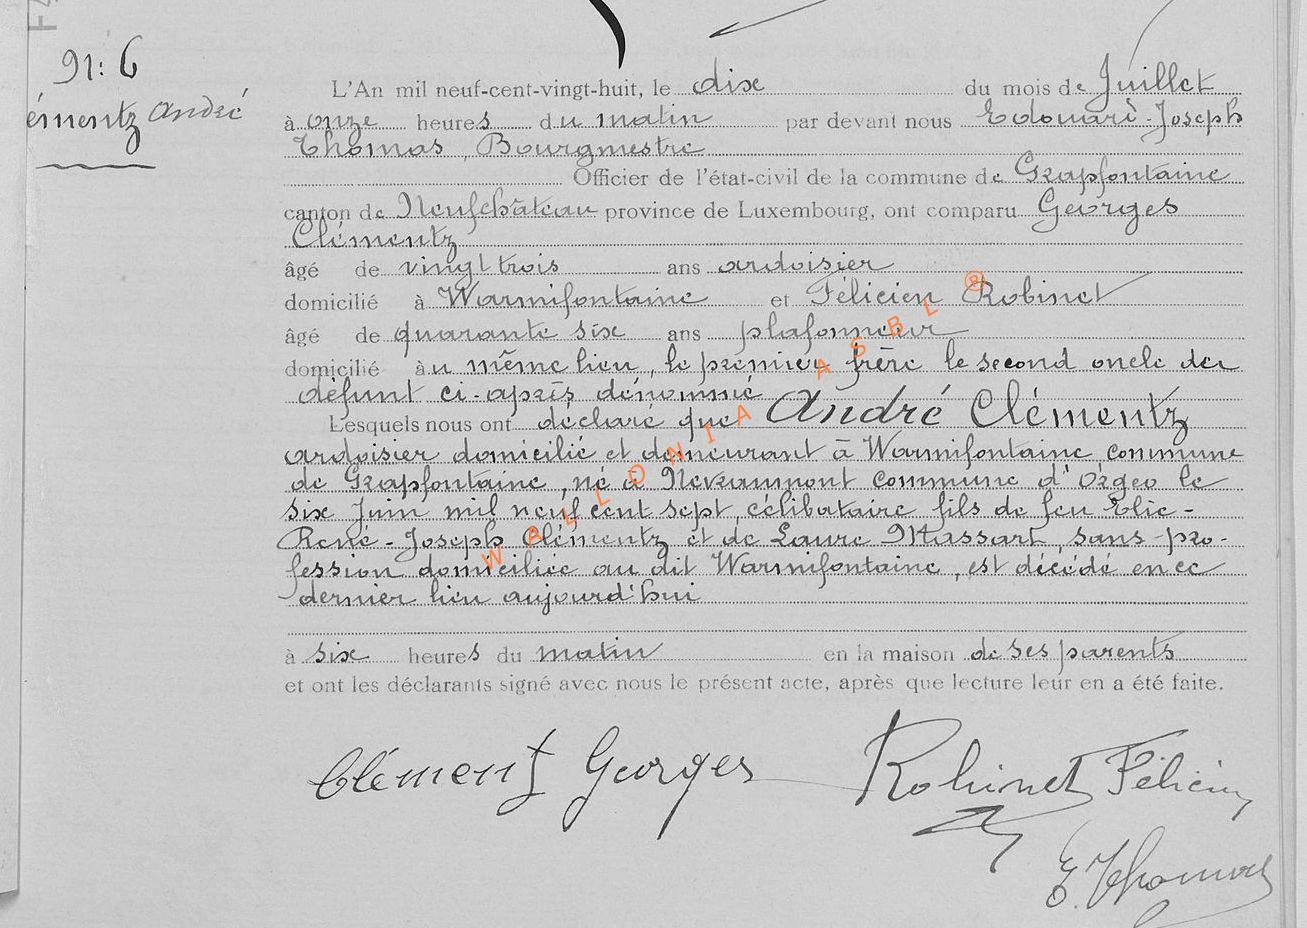 N: 6
émentz André
L'An mil neuf-cent-vingt-huit, le dix du mois de Juillet
à onze heures du matin par devant nous Edouard-Joseph
Thomas, Bourgmestre
Officier de l'état-civil de la commune de Grapfontaine
canton de Neufchâteau province de Luxembourg, ont comparu Georges
Clémentz
âgé de vingt trois ans ardoisier
domicilié à Warmifontaine et Félicien Robinet
âgé de quarante six ans plafonneur
domicilié au même lieu, le premier frère le second oncle du
défunt ci-après dénommé
Lesquels nous ont déclaré que André Clémentz
ardoisier domicilié et demeurant à Warmifontaine commune
de Grapfontaine, né à Nevraumont commune d'Orgeo le
six Juin mil neuf cent sept, célibataire fils de feu Elie-
René-Joseph Clémentz et de Laure Massart, sans pro-
fession domiciliée au dit Warmifontaine, est décédé en ce
dernier lieu aujourd'hui
à six heures du matin en la maison de ses parents
et ont les déclarants signé avec nous le présent acte, après que lecture leur en a été faite.
Clémentz Georges Robinet Félicien
E. Thomas
WALLONIA ASBL ®